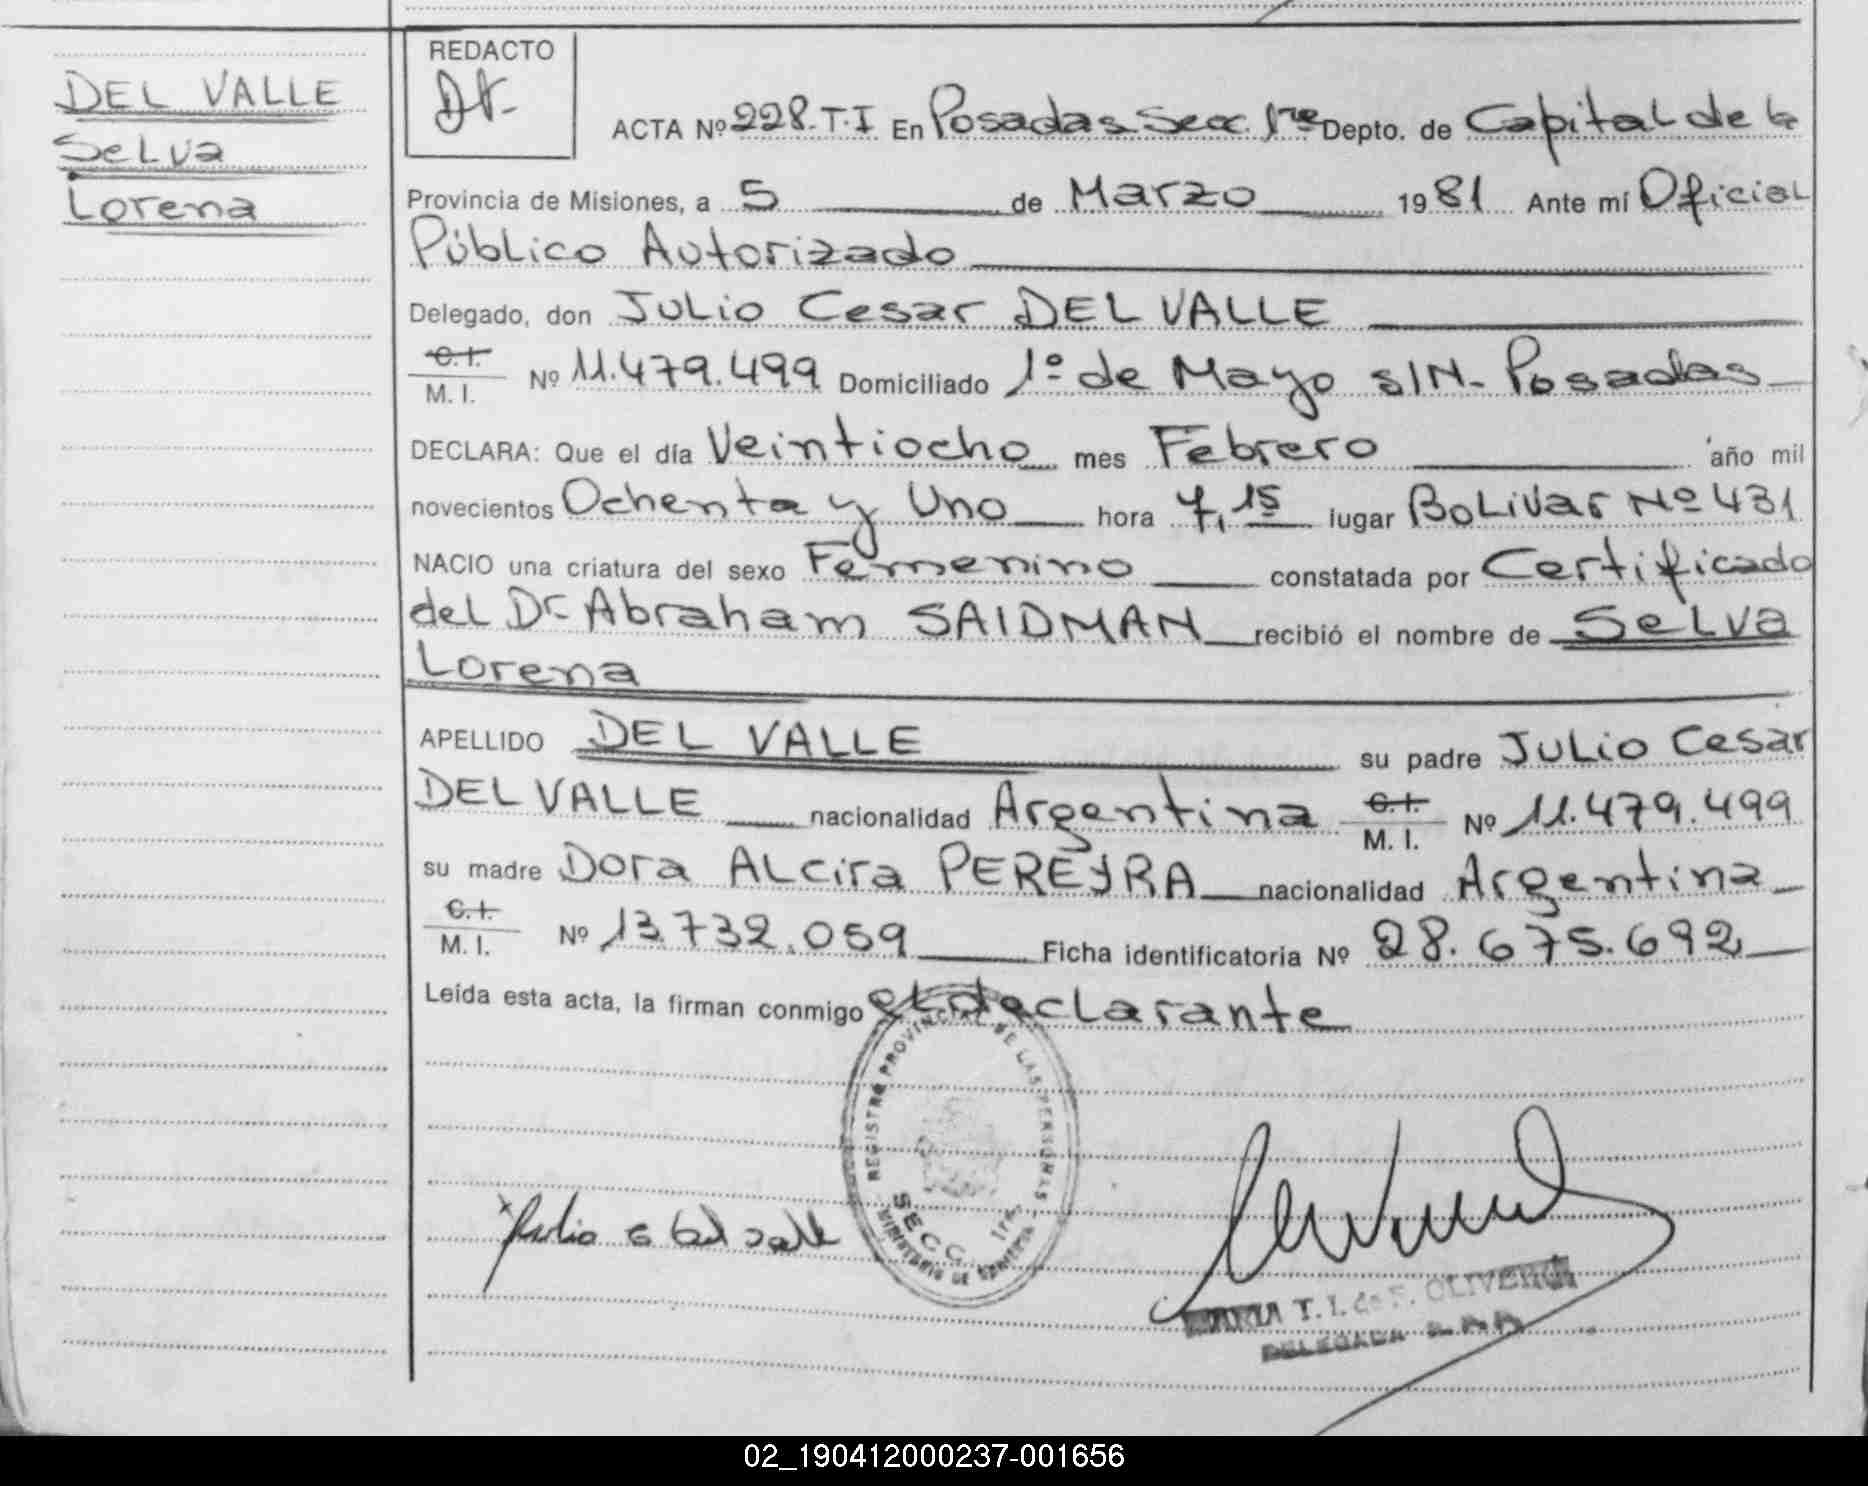 DEL VALLE
Selva
Lorena
REDACTO
ACTA Nº 228.T.I En Posadas Secc. 1ra Depto. de Capital de la
Provincia de Misiones, a 5 de Marzo 1981 Ante mí Oficial
Público Autorizado
Delegado, don Julio Cesar DEL VALLE
C.I.
M. I. Nº 11.479.499 Domiciliado 1º de Mayo s/N- Posadas
DECLARA: Que el día Veintiocho mes Febrero año mil
novecientos Ochenta y Uno hora 7,15 lugar Bolivar Nº 431
NACIO una criatura del sexo Femenino constatada por Certificado
del Dr Abraham SAIDMAN recibió el nombre de Selva
Lorena
APELLIDO DEL VALLE su padre Julio Cesar
DEL VALLE nacionalidad Argentina C.I. M. I. Nº 11.479.499
su madre Dora Alcira PEREYRA nacionalidad Argentina
C.I.
M. I. Nº 13.732.059 Ficha identificatoria Nº 28.675.692
Leída esta acta, la firman conmigo el declarante
REGISTRO PROVINCIAL DE LAS PERSONAS
SECC. 1ra.
MINISTERIO DE GOBIERNO
Julio C del valle
MARIA T. I. de F. OLIVERA
DELEGADA
02_190412000237-001656